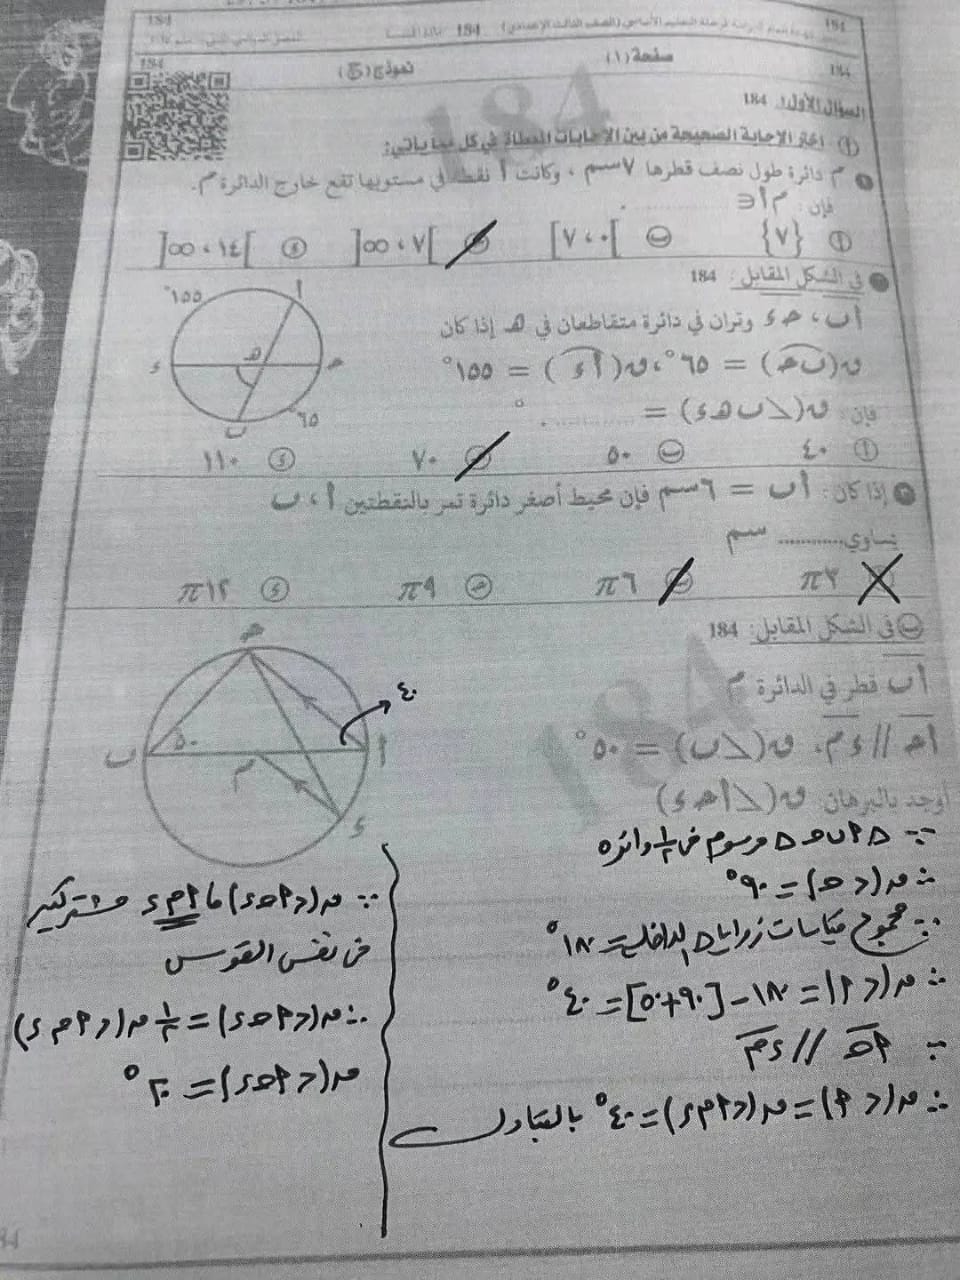 184
184
184
صفحة (١)
نموذج (ج)
184
184
السؤال الأول: 184
(أ) اختر الإجابة الصحيحة من بين الإجابات المعطاة في كل مما يأتي:
١ م دائرة طول نصف قطرها ٧ سم ، وكانت أ نقطة في مستويها تقع خارج الدائرة م.
فإن: م أ ∈ ..........
أ {٧} ب ]٠ ، ٧[ ج ]٧ ، ∞[ د ]١٤ ، ∞[
٢ في الشكل المقابل: 184
أب ، جـ د وتران في دائرة متقاطعان في هـ إذا كان
ق(ب جـ) = ٦٥° ، ق(أ د) = ١٥٥°
فإن: ق(∠ب هـ د) = ..........°
أ ٤٠ ب ٥٠ ج ٧٠ د ١١٠
١٥٥°
أ
د
هـ
جـ
ب
٦٥°
٣ إذا كان: أب = ٦ سم فإن محيط أصغر دائرة تمر بالنقطتين أ ، ب
يساوي .......... سم
أ ٣π ب ٦π ج ٩π د ١٢π
(ب) في الشكل المقابل: 184
أب قطر في الدائرة م
أجـ // د م ، ق(∠ب) = ٥٠°
أوجد بالبرهان: ق(∠أ جـ د)
جـ
٤٠
ب
٥٠
م
أ
د
∵ △ أ ب جـ △ مرسوم في ½ دائرة
∴ ق(∠جـ) = ٩٠°
∵ مجموع قياسات زوايا △ الداخلة = ١٨٠°
∴ ق(∠أ) = ١٨٠ - [٩٠+٥٠] = ٤٠°
∵ أجـ // د م
∴ ق(∠أ) = ق(∠أ م د) = ٤٠° بالتبادل
∵ ق(∠أ جـ د) ، أ م د مشتركتين
في نفس القوس
∴ ق(∠أ جـ د) = ½ ق(∠أ م د)
ق(∠أ جـ د) = ٢٠°
184
184